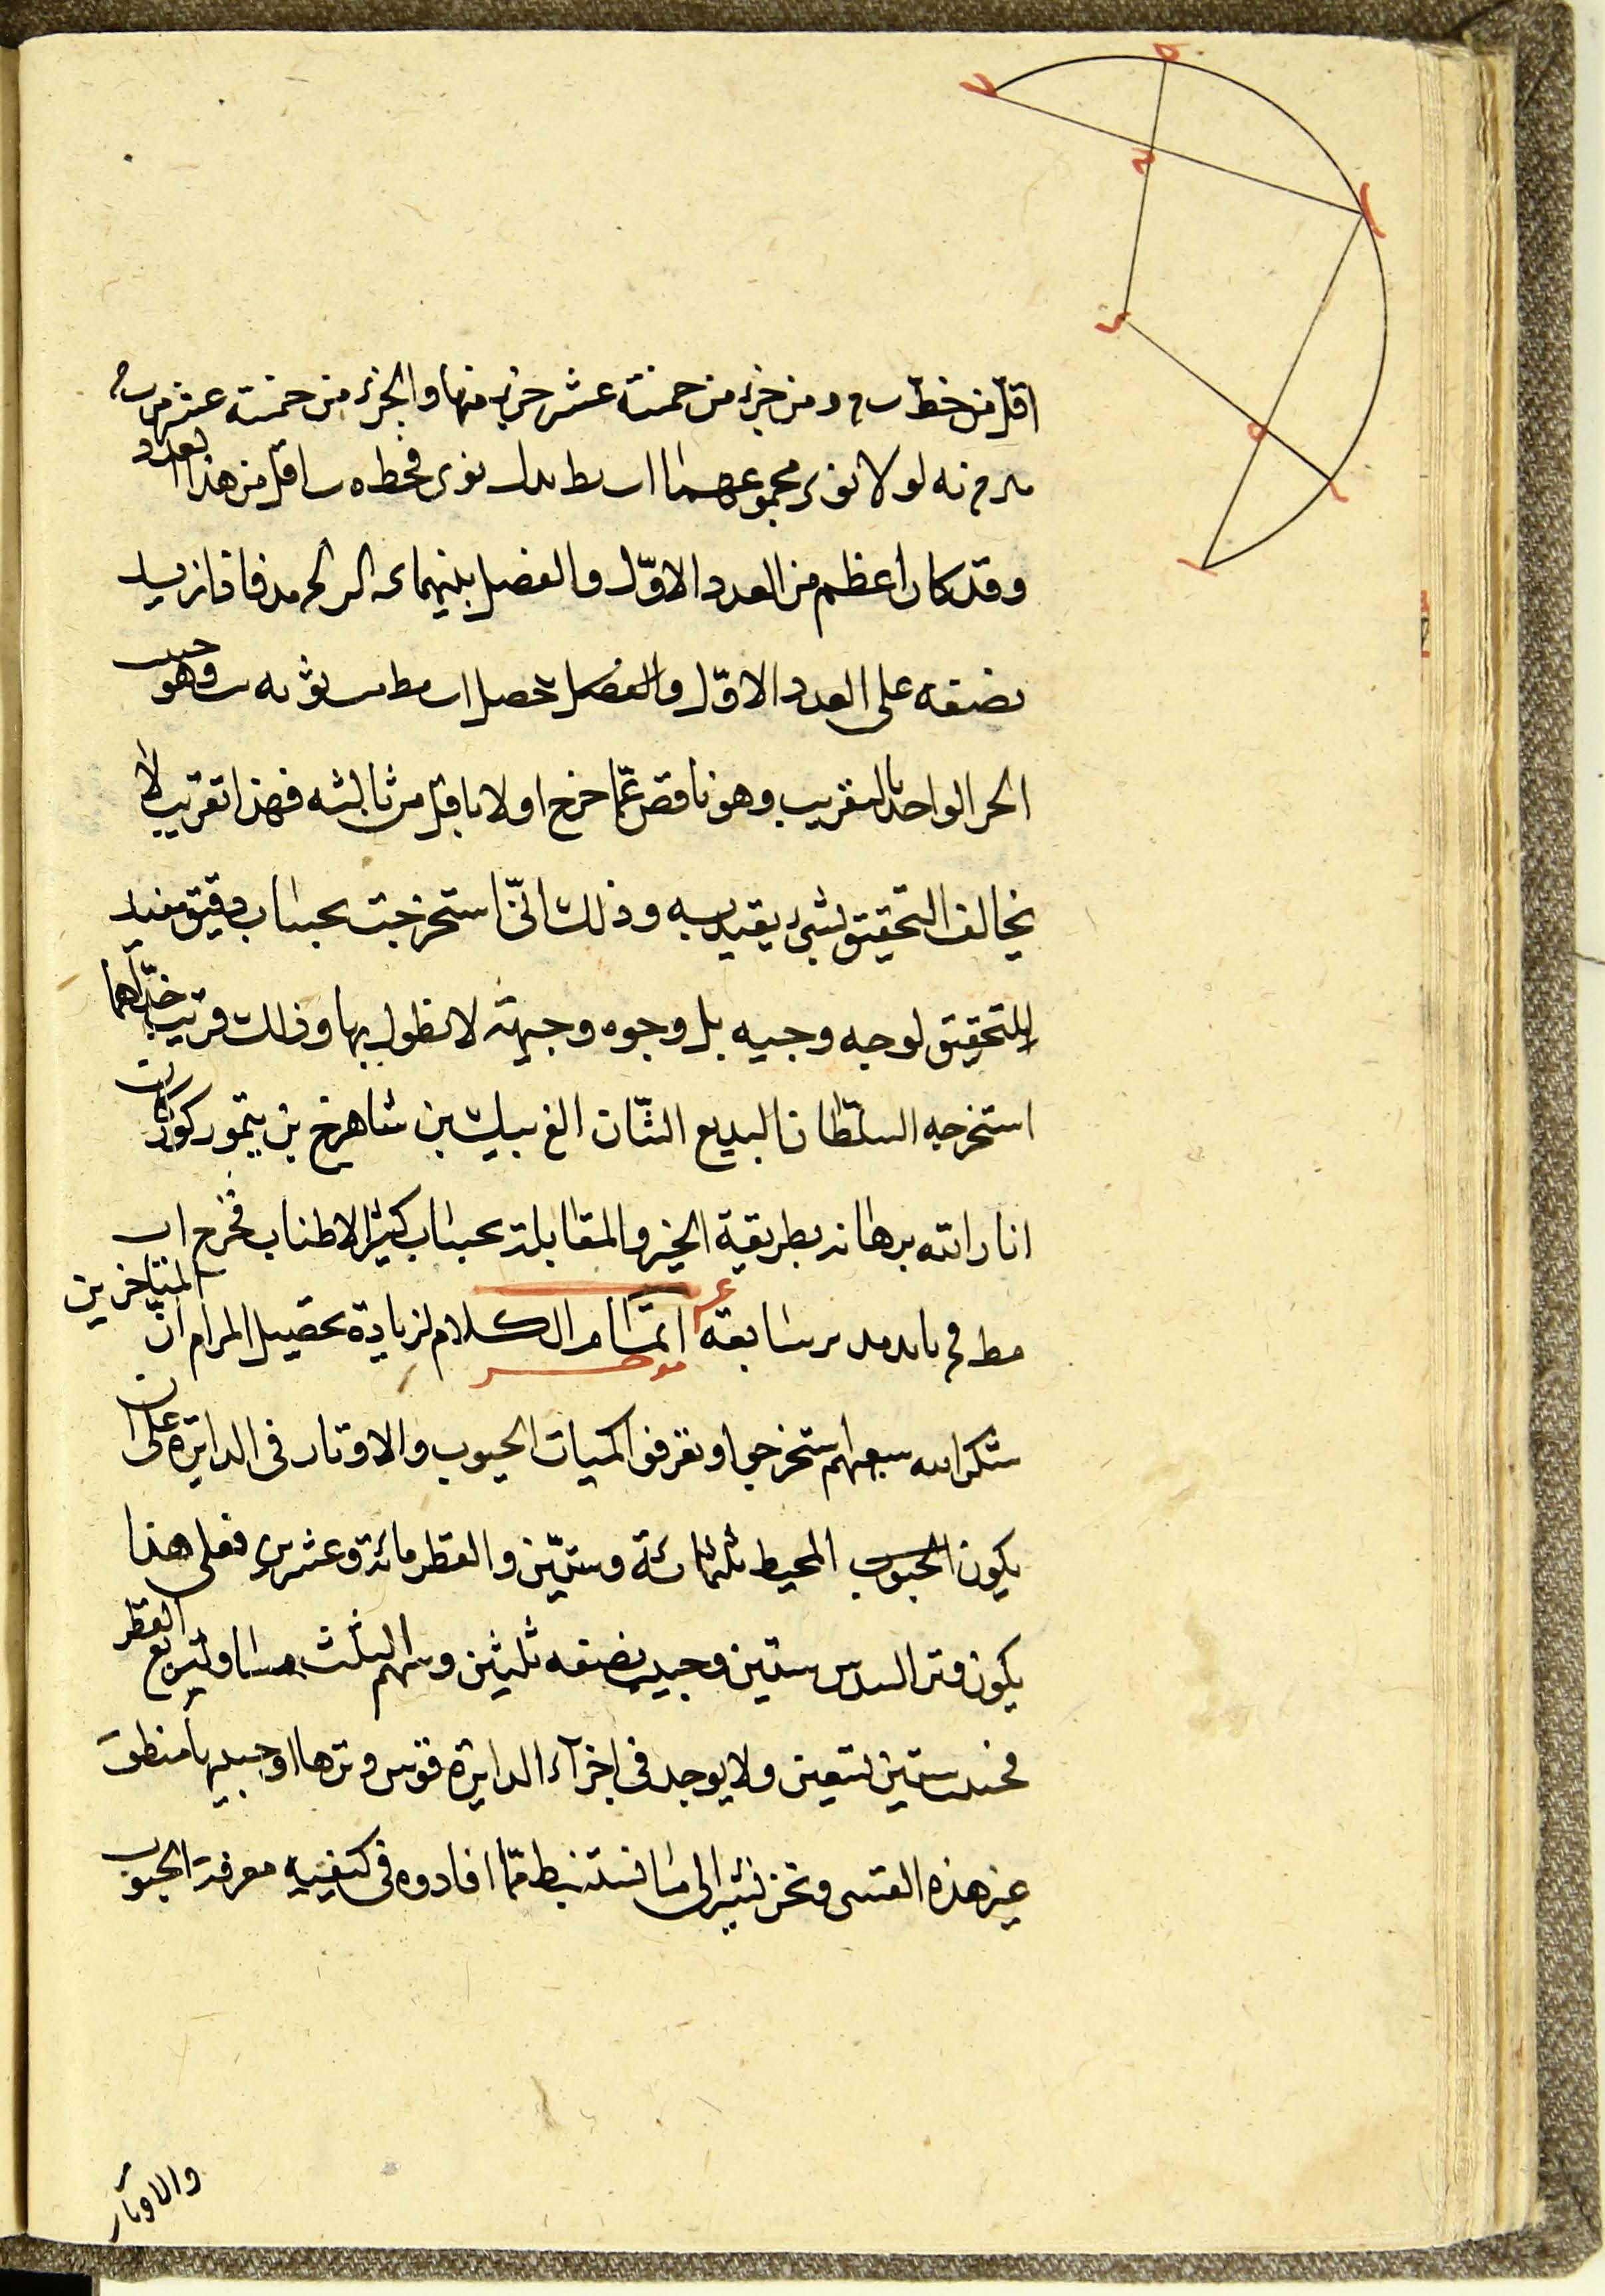 اقل من خط ب ح د من جزء من خمسة عشر جزء منها والجزء من خمسة عشر من ب ح
لولا نوى مجموعهما ا ب ط نوى فخط ه ب اقل من هذا العدد
وقد كان أعظم من العدد الاوّل والفضل بينهما فاذا زيد
نصفه على العدد الاوّل والفضل حصل ا ب مط وهو جيب
الجزء الواحد بالتقريب وهو ناقص عمّا خرج اولا باقل من ثالثه فهذا تقريب لا
يخالف التحقيق بشئ يعتد به وذلك انّى استخرجت بحساب دقيق مفيد
للتحقيق لوجه وجيه بل وجوه وجيهة لا نطول بها وذلك قريب جدّا مما
استخرجه السلطان البديع الشّان الغ بيك بن شاهرخ بن تيمور كوركان
انار الله برهانه بطريقة الجبر والمقابلة بحساب كثير الاطناب فخرج ا ب
مط سابعة اتمام الكلام لزيادة تحصيل المرام ان المتاخرين
شكر الله سعيهم استخرجوا وتعرفوا كميات الجيوب والاوتار فى الدايرة على ان
يكون الجيوب المحيط ثلثمائة وستّين والقطر مائة وعشرين فعلى هذا
يكون وتر السدس ستين وجيب نصفه ثلثين وسهم الثلث مساو لربع القطر
ستين تسعين ولا يوجد فى اجزآء الدايرة قوس وترها او جيبها منطق
غير هذه القسى ونحن نشير الى ما نستنبط ممّا افادوه فى كيفيه معرفة الجيوب
والاوتار